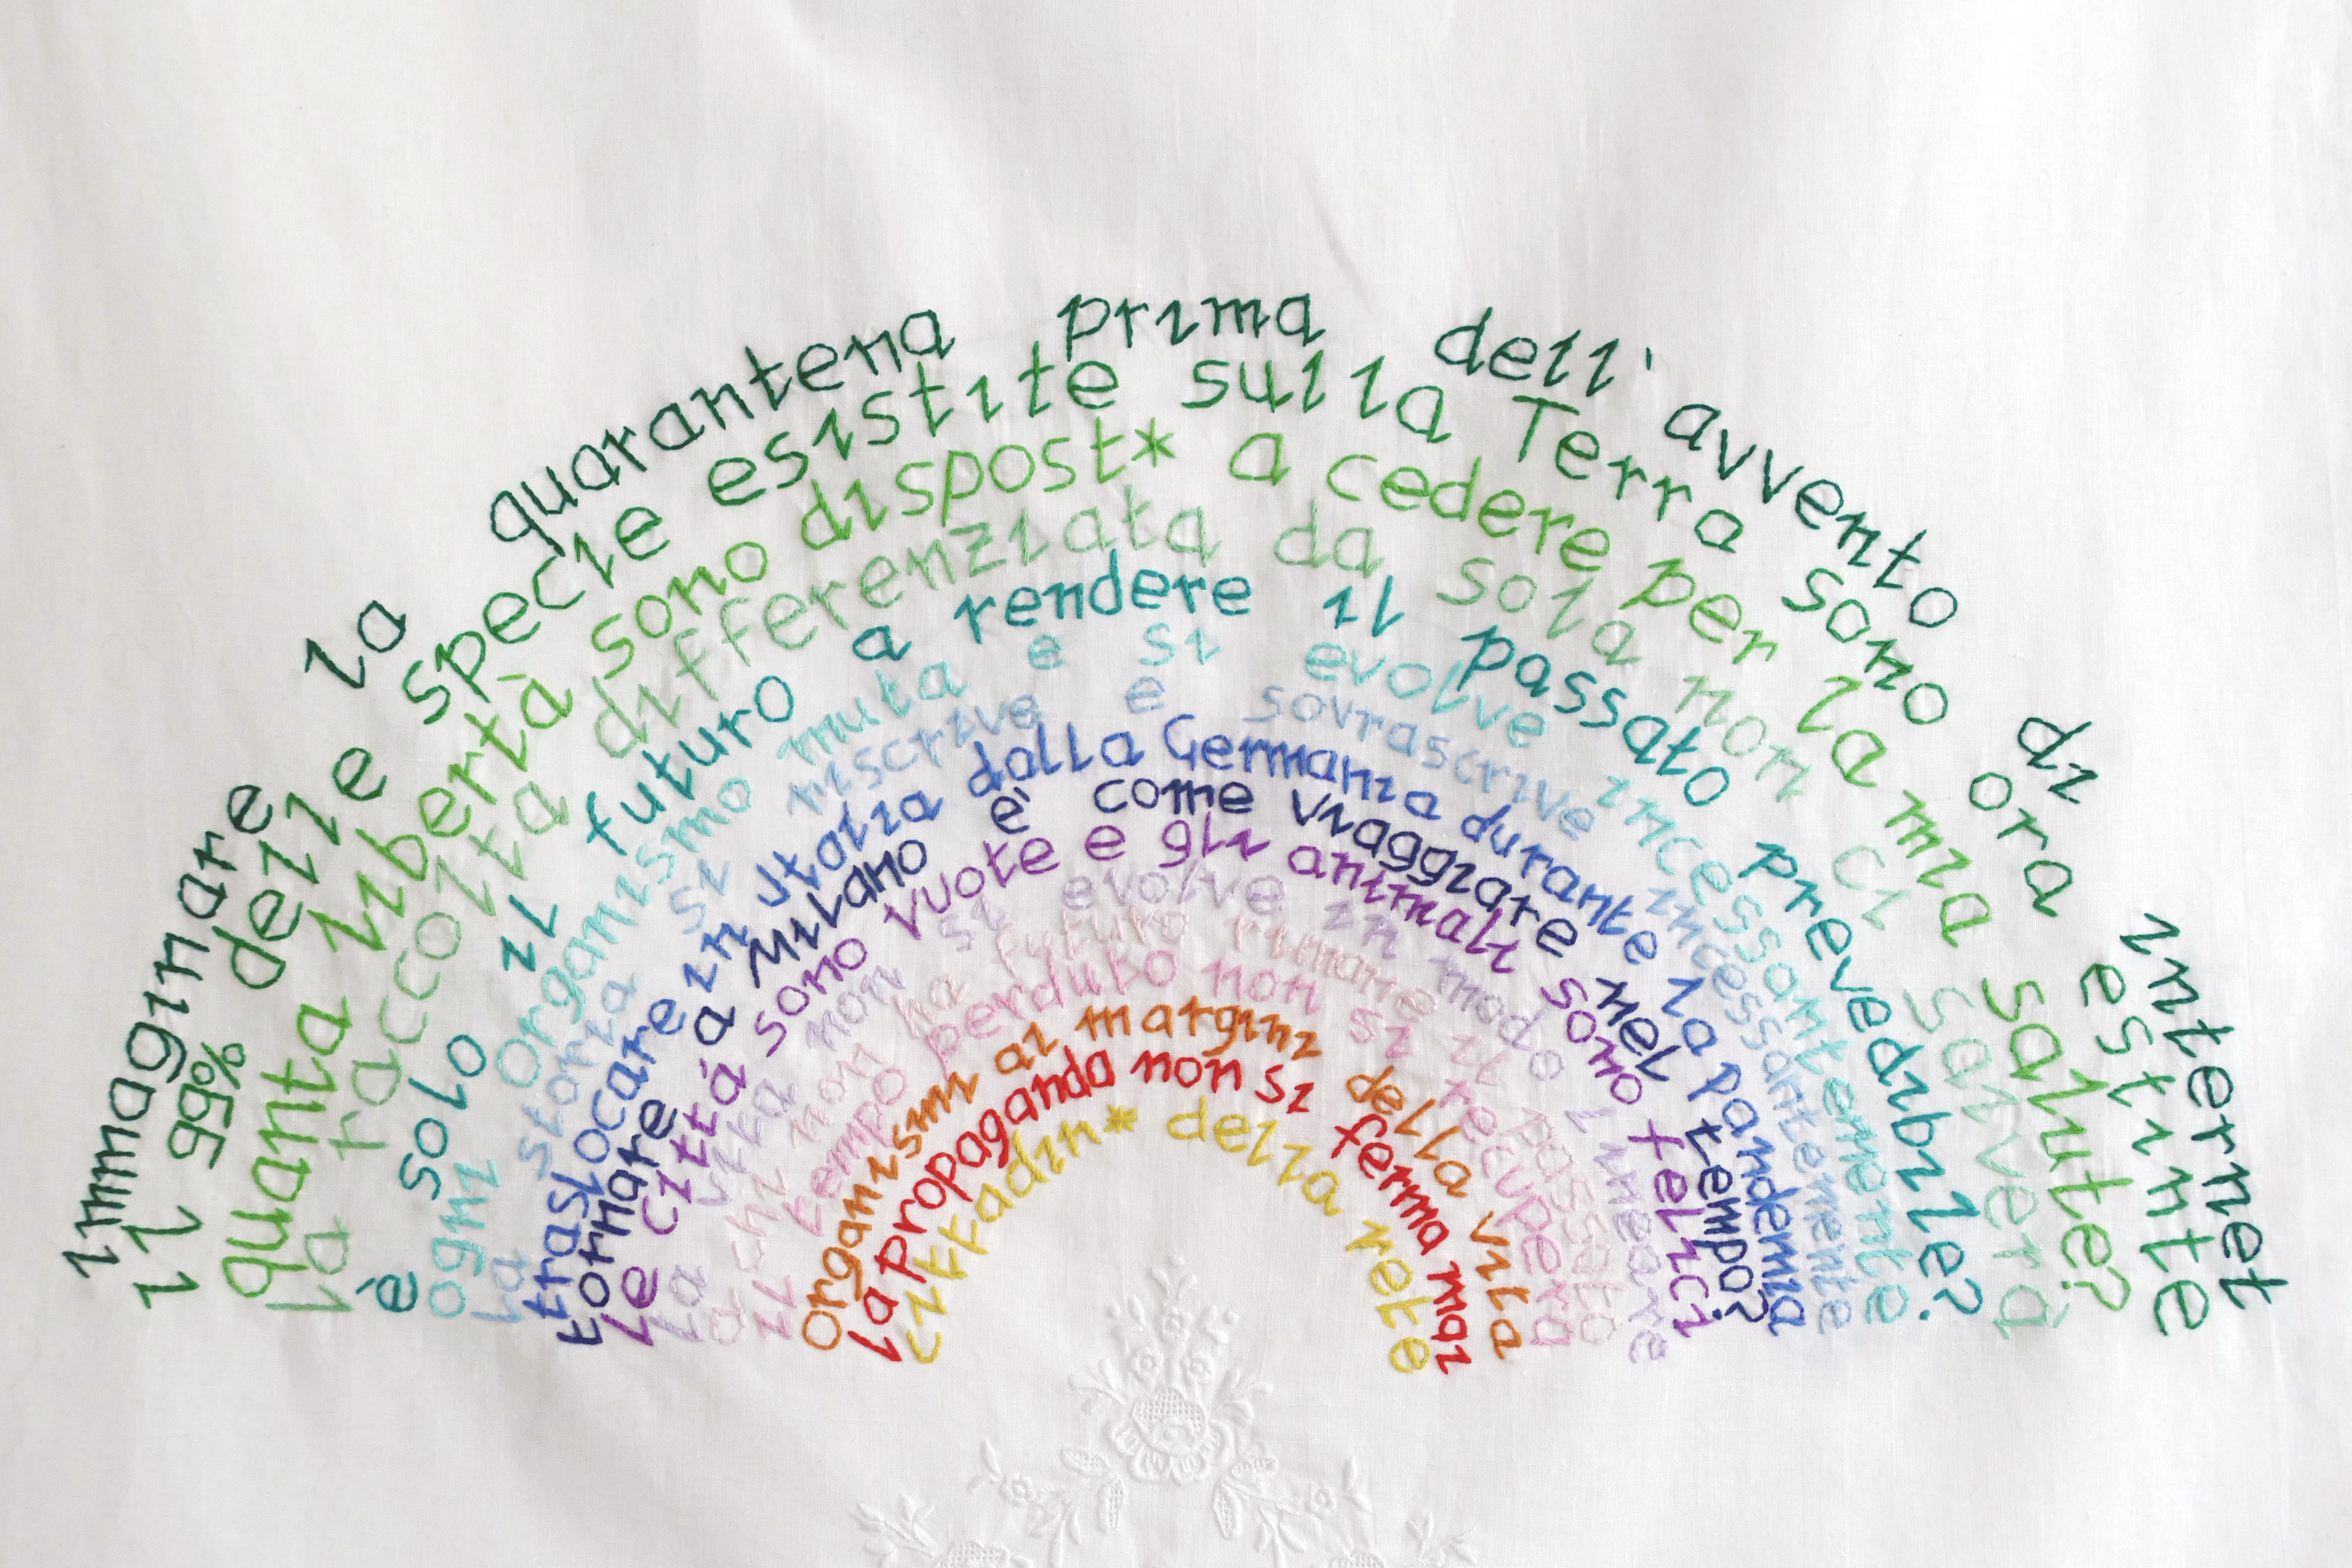 immaginare la quarantena prima dell'avvento di internet
il 99% delle specie esistite sulla Terra sono ora estinte
quanta libertà sono dispost* a cedere per la mia salute?
la raccolta differenziata da sola non ci salverà
è solo il futuro a rendere il passato prevedibile?
ogni organismo muta e si evolve incessantemente
la storia si riscrive e sovrascrive incessantemente
traslocare in Italia dalla Germania durante la pandemia
tornare a Milano è come viaggiare nel tempo?
le città sono vuote e gli animali sono felici
la vita non si evolve in modo lineare
a chi non ha futuro rimane il passato
il tempo perduto non si recupera
organismi ai margini della vita
la propaganda non si ferma mai
cittadin* della rete